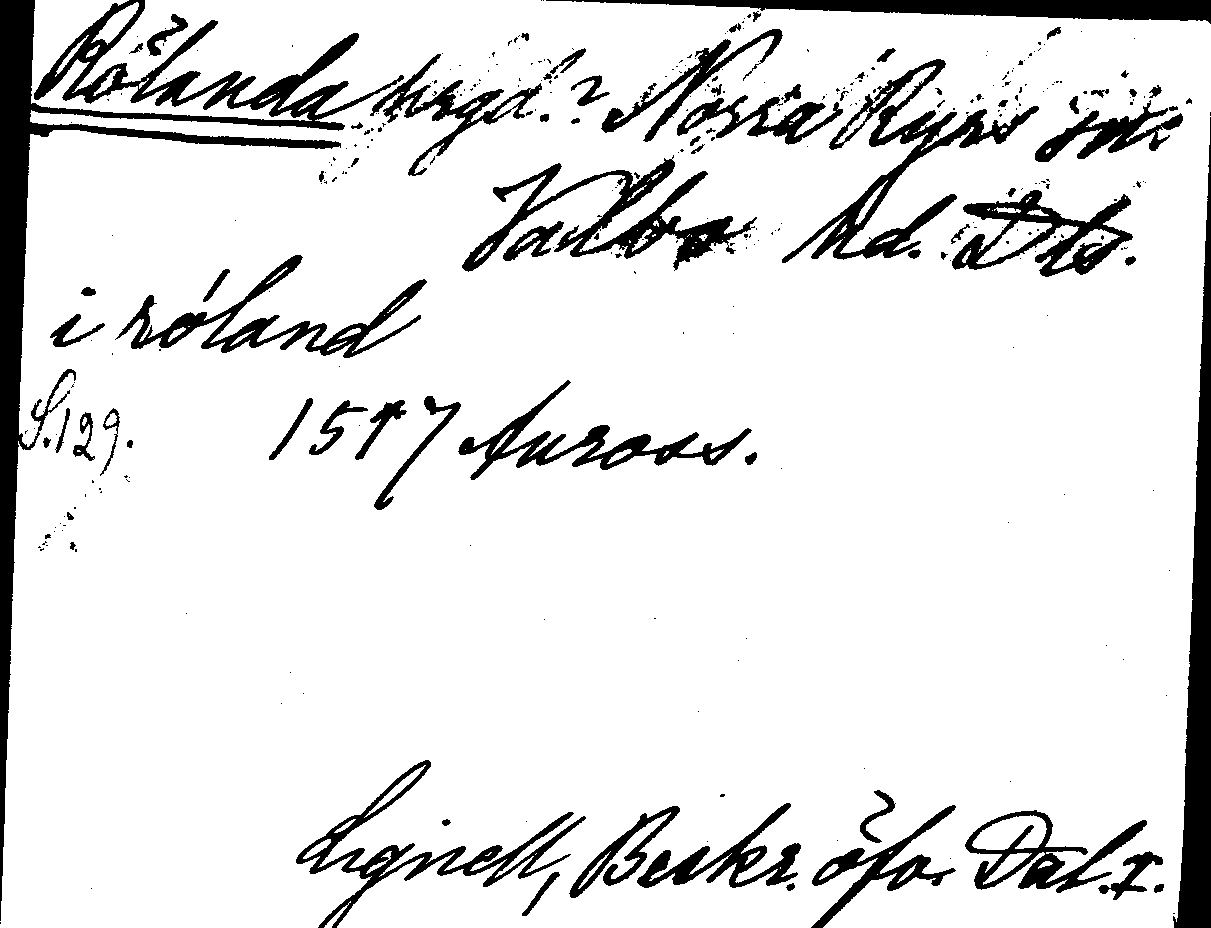 Rölanda hrgd.? Norra Ryrs sn
Valbo hd. Dls.
i róland
S. 129. 1517 Auross.
Lignell, Beskr. öfv. Dal. I.